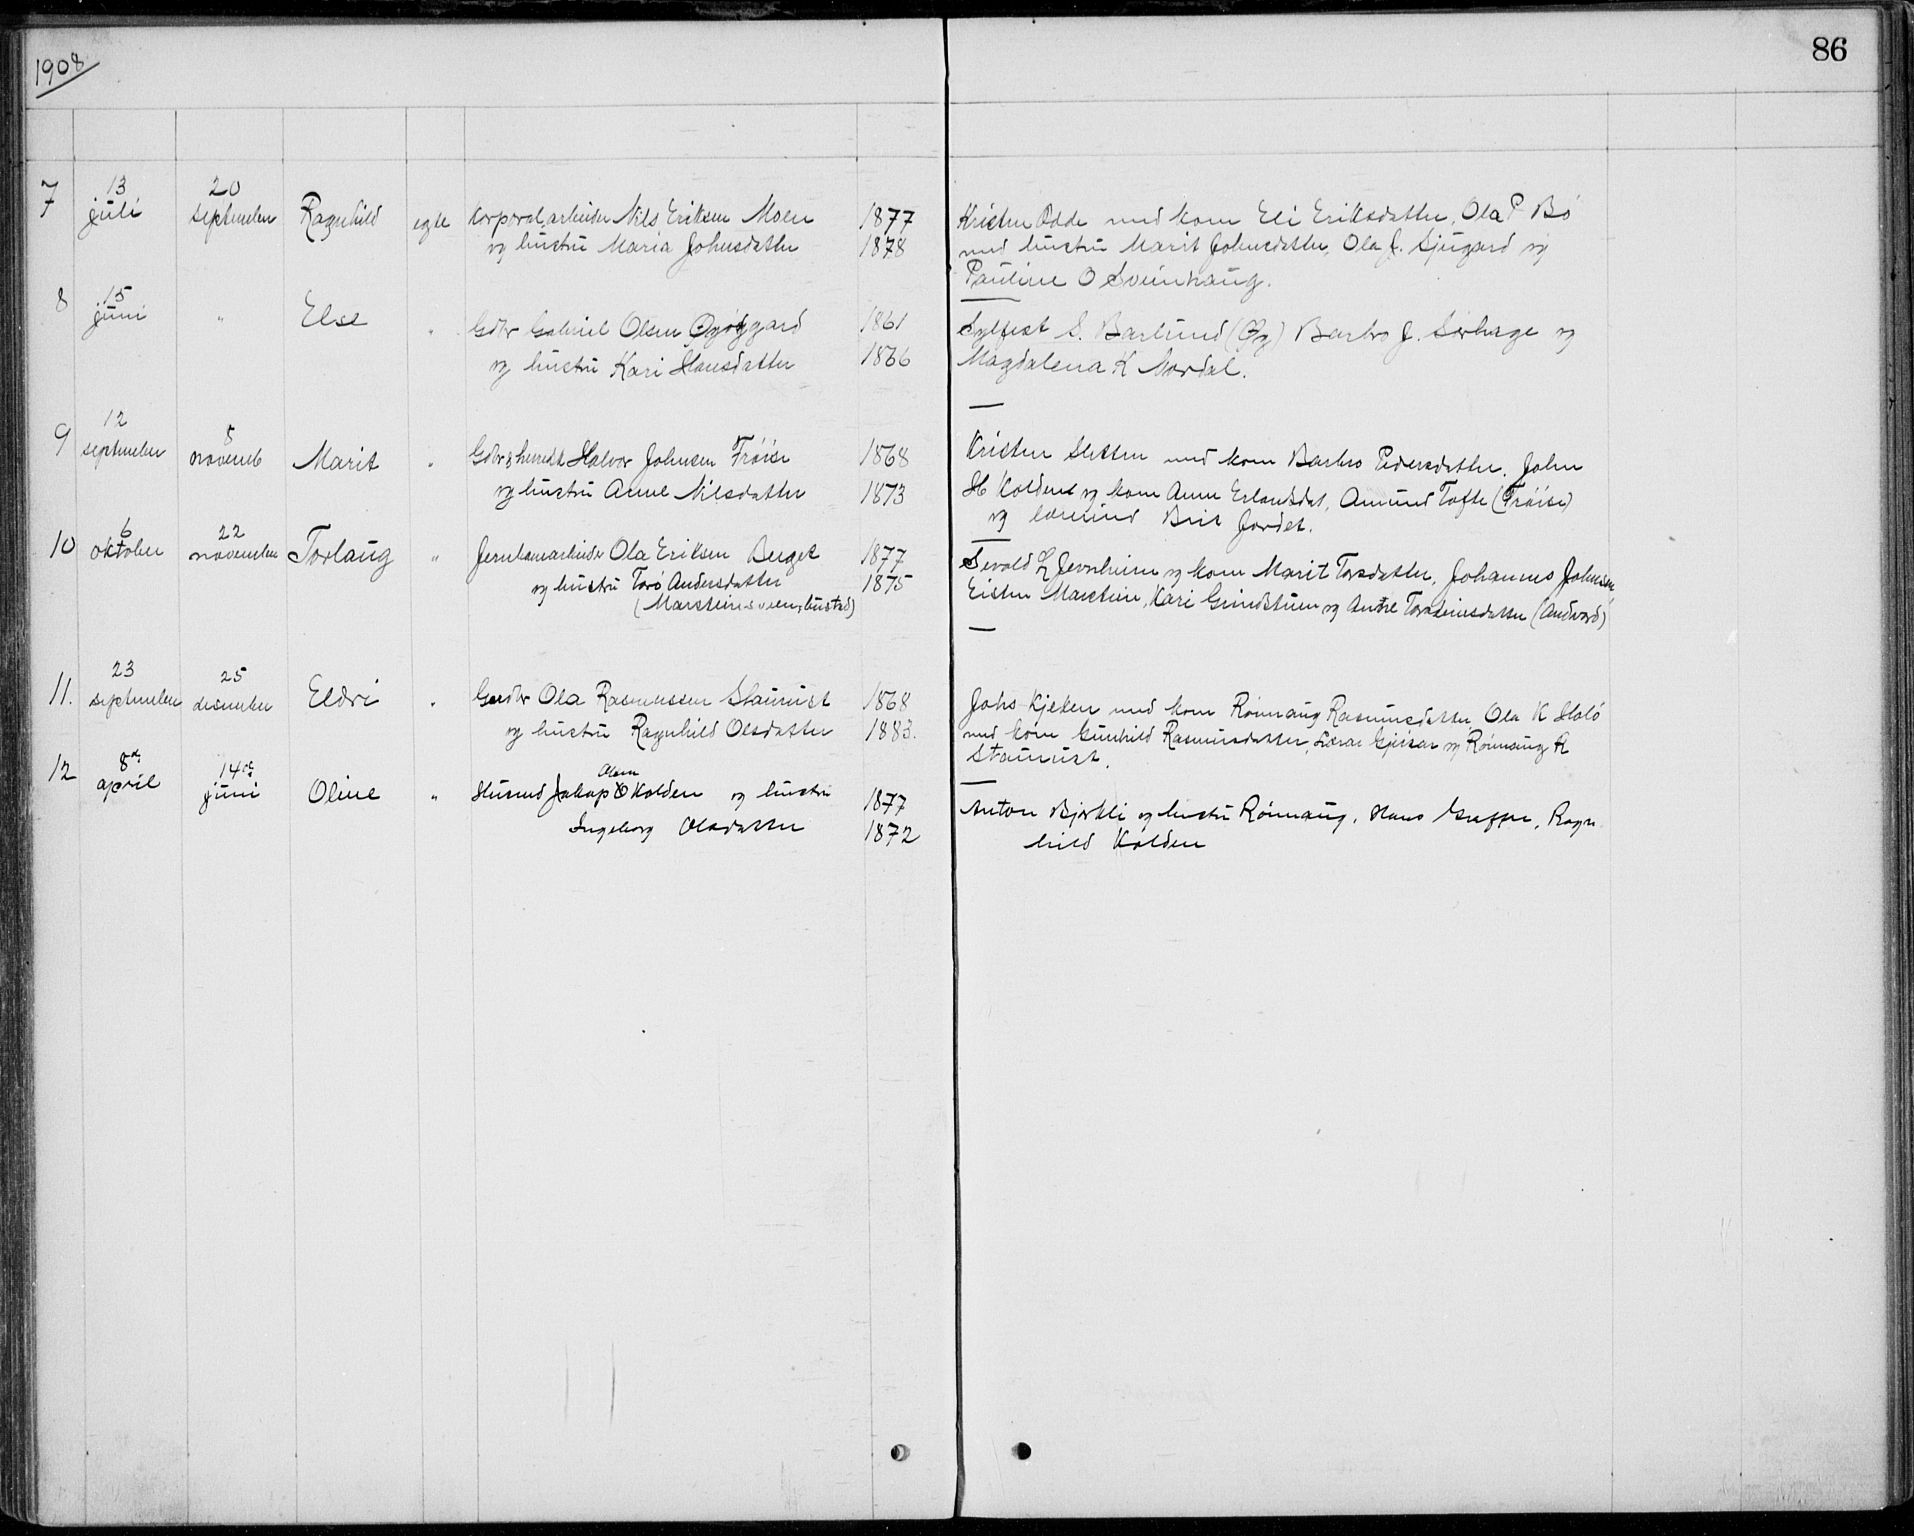 1908
86
7 13 juli 20 september Ragnhild egte Korporal, arbeider Nils Eriksen Moen 1877
og hustru Maria Johnsdatter 1878
Kristen Odde med kone Eli Eriksdatter, Ola P Bø
med hustru Marit Johnsdatter, Ola J. Sjugard og
Pauline O Sveinhaug.
8 15 juni " Else " Gdbr Gabriel Olsen 1861
og hustru Kari Hansdatter 1866
Sylfest S. Barlund (Øy) Barbro J. Sørhage og
Magdalena K Nordal.
9 12 september 8 novemb Marit " Gdbr & Halvor Johnsen Trøise 1868
og hustru Anne Nilsdatter 1873
Kristen Sletten med kone Barbro Pedersdatter, John
H Kolden og kone Anne Erlandsdat, Amund Tofte (Trøise)
og lærerind Brit Jordet.
10 6 oktober 22 november Torlaug " Jernbanearbeider Ola Eriksen Berget 1877
og hustru Torø Andersdatter 1875
(Marsteinsveenhustad)
Sevald L Jevnheim og kone Marit Torsdatter, Johannes Johnsen,
Eisten Marstein, Kari Grindstuen og Torsteinsdatter (Andvord)
11. 23 september 25 desember Eldri " Gardbr Ola Rasmussen Stavrust 1868
og hustru Ragnhild Olsdatter 1883.
Johs Kjeken med kone Rønnaug Rasmusdatter, Ola K Holø
med kone Gunhild Rasmusdatter, Lærar og Rønnaug R
Stavrust.
12 8de april 14de juni Oline " Husmd Jakop Olsen Kolden og hustru 1877
Ingeborg Olsdatter 1872
Anton Bjørkli og hustru Rønnaug, Hans, Ragn
hild Kolden